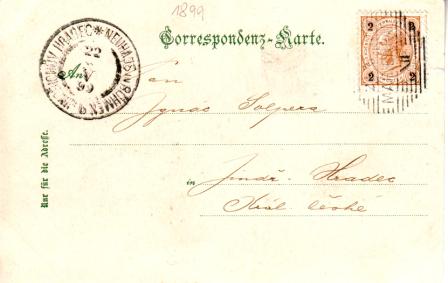 1899
Correspondenz-Karte.
NEUHAUS IN BÖHMEN
HRADEC
22
V
99
2 2
2 2
An
Pan
Ignác Solpera
in
Jindř. Hradec
Král. české
Nur für die Adresse.